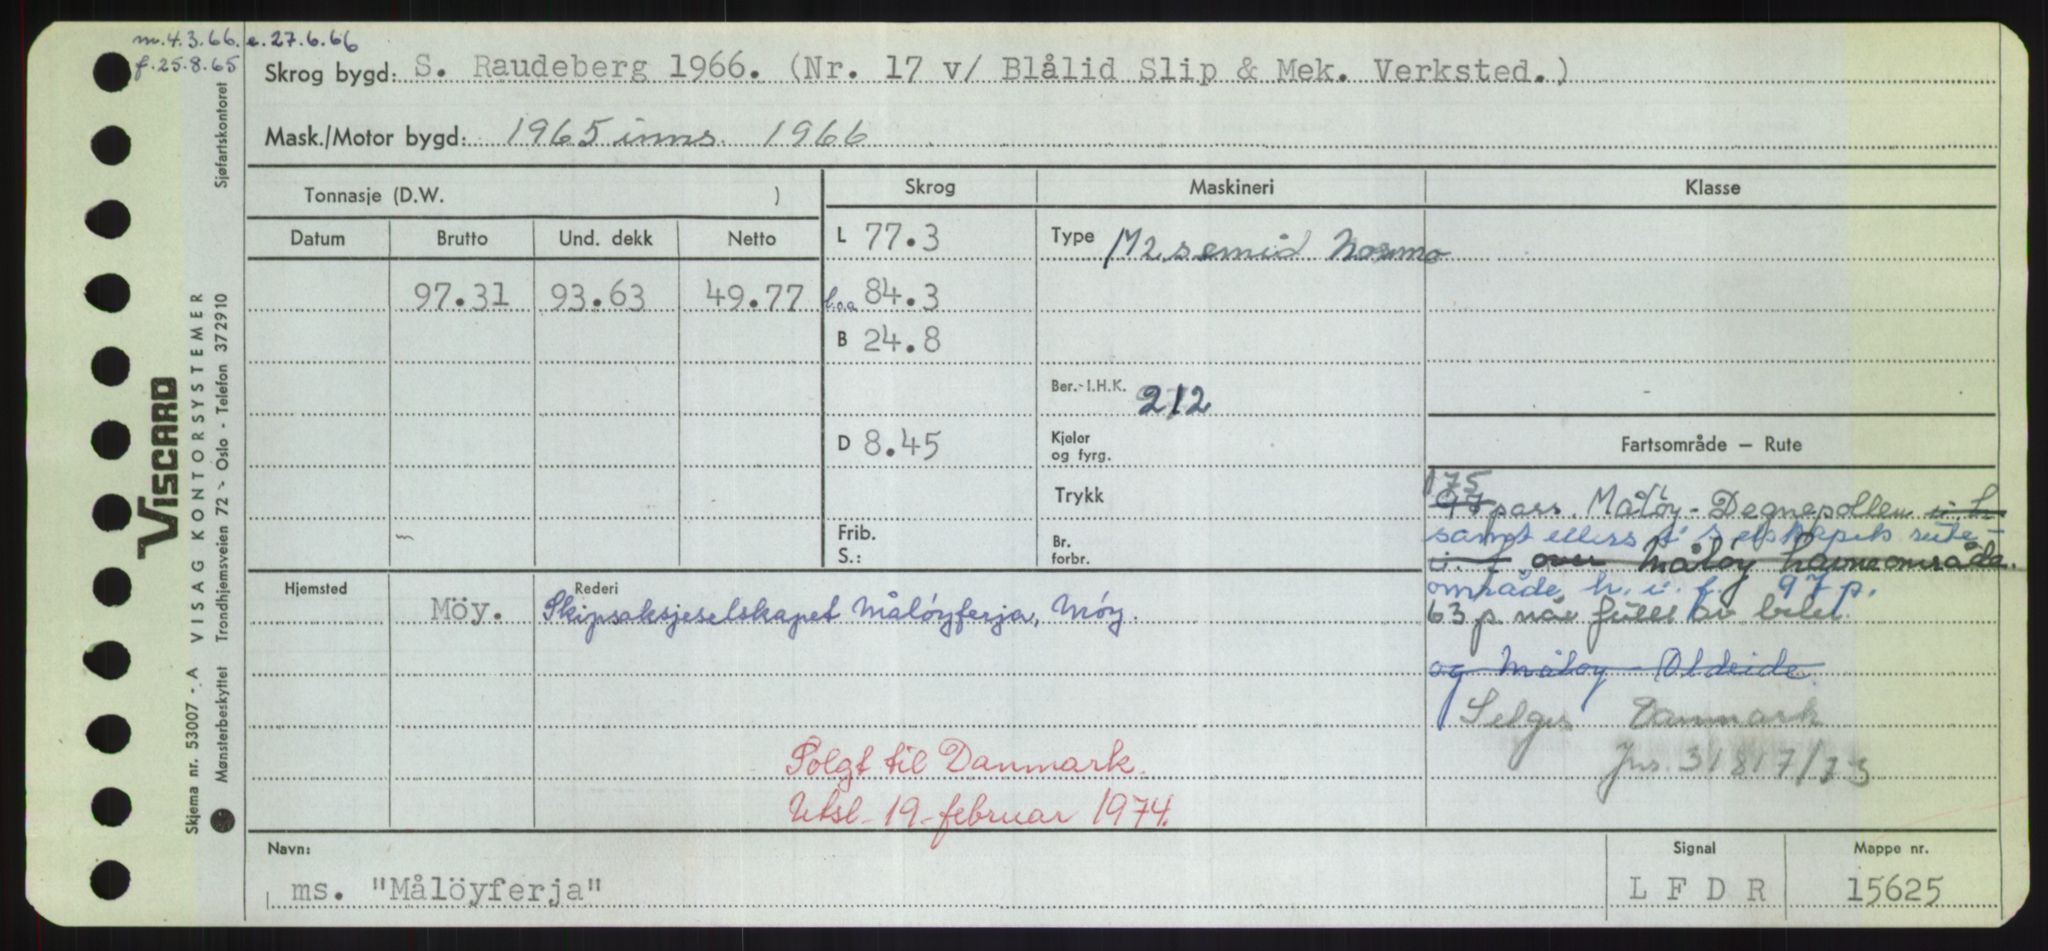 m. 4.3.66. e. 27.6.66
f. 25.8.65
Skrog bygd: S. Raudeberg 1966. (Nr. 17 v/ Blålid Slip & Mek. Verksted.)
Mask./Motor bygd: 1965 inns. 1966
Tonnasje (D.W. )
Skrog
Maskineri
Klasse
Datum Brutto Und. dekk Netto
L 77.3
Type M 2 s emid Normo
97.31 93.63 49.77
l.o.a 84.3
B 24.8
Ber.-I.H.K. 212
D 8.45
Kjeler og fyrg.
Trykk
Frib.
S.:
Br. forbr.
Fartsområde – Rute
175
97 pass. Måløy - Degnepollen i. h.
samt ellers i selskapets rute-
i. f over Måløy havneområde.
område h. i. f. 97 p.
63 p. når fullt av biler.
og Måløy - Oldeide.
Selges Danmark
Jnr. 31817/73
Hjemsted
Rederi
Möy. Skipsaksjeselskapet Målöyferja, Möy.
Solgt til Danmark.
Utsl. 19. februar 1974.
Navn:
ms. "Målöyferja"
Signal
L F D R
Mappe nr.
15625
VISCARD
Skjema nr. 53007 - A VISAG KONTORSYSTEMER
Mønsterbeskyttet Trondhjemsveien 72 - Oslo - Telefon 372910 Sjøfartskontoret